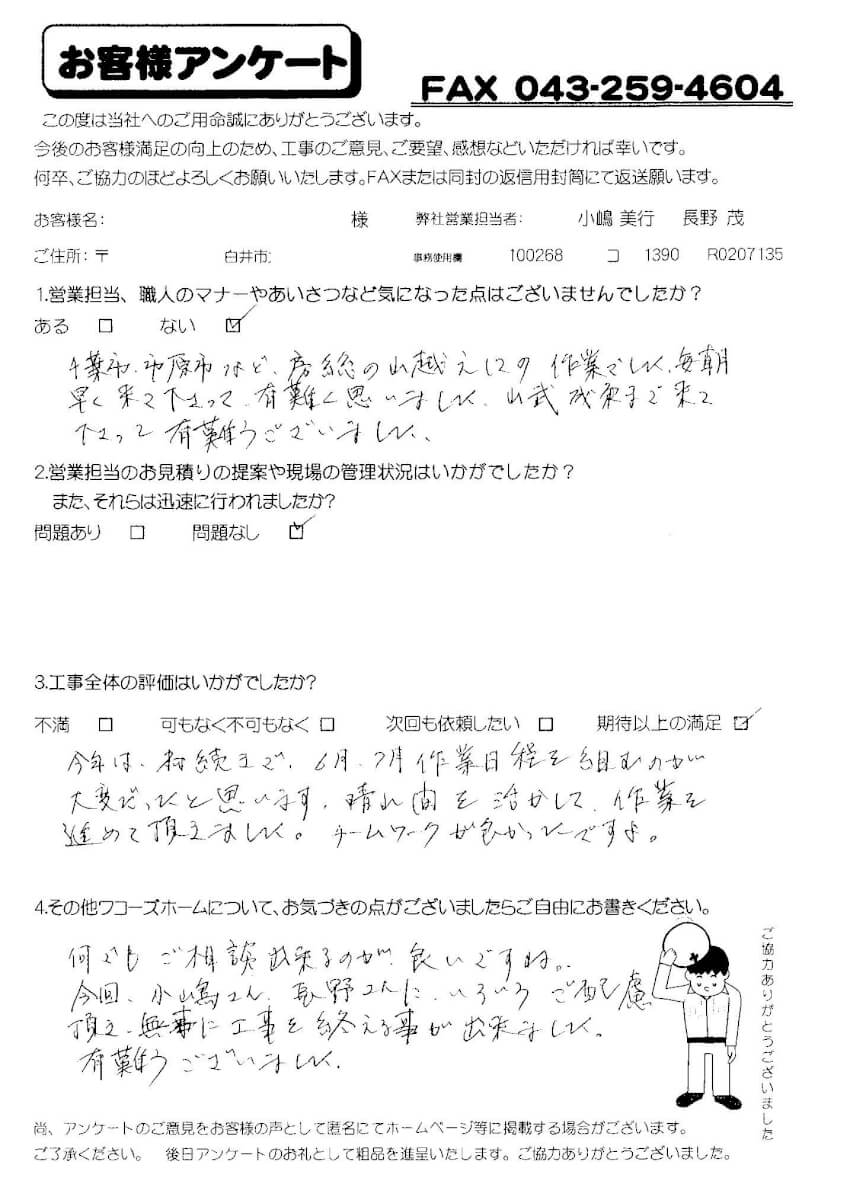 お客様アンケート
FAX 043-259-4604
この度は当社へのご用命誠にありがとうございます。
今後のお客様満足の向上のため、工事のご意見、ご要望、感想などいただければ幸いです。
何卒、ご協力のほどよろしくお願いいたします。FAXまたは同封の返信用封筒にて返送願います。
お客様名: 様 弊社営業担当者: 小嶋 美行 長野 茂
ご住所:〒 白井市 事務使用欄 100268 コ 1390 R0207135
1.営業担当、職人のマナーやあいさつなど気になった点はございませんでしたか？
ある □ ない ☑
千葉市、市原市など、房総の山越えての作業でした、毎朝
早く来て下さって、有難く思いました、山武成東まで来て
下さって有難うございました、
2.営業担当のお見積りの提案や現場の管理状況はいかがでしたか？
また、それらは迅速に行われましたか?
問題あり □ 問題なし ☑
3.工事全体の評価はいかがでしたか?
不満 □ 可もなく不可もなく □ 次回も依頼したい □ 期待以上の満足 ☑
今年は、 続まで、6月、7月作業日程を組むのが
大変だったと思います、晴れ間を活かして、作業を
進めて頂きました。チームワークが良かったですよ。
4.その他ワコーズホームについて、お気づきの点がございましたらご自由にお書きください。
何でもご相談出来るのが、良いですね。
今回、小嶋さん、長野さんに、いろいろご配慮
頂き、無事に工事を終える事が出来ました。
有難うございました。
ご協力ありがとうございました
尚、アンケートのご意見をお客様の声として匿名にてホームページ等に掲載する場合がございます。
ご了承ください。 後日アンケートのお礼として粗品を進呈いたします。ご協力ありがとうございました。